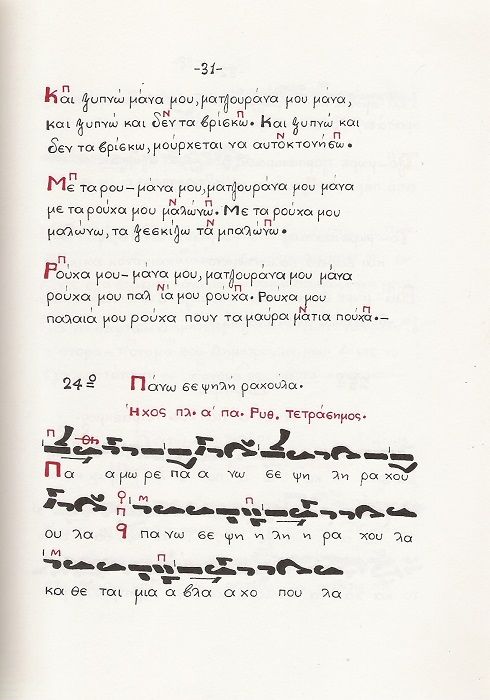 -31-
Και ξυπνώ μάνα μου, ματζουράνα μου μάνα,
και ξυπνώ και δεν τα βρίσκω. Και ξυπνώ και
δεν τα βρίσκω, μούρχεται να αυτοκτονήσω.
Με τα ρου-μάνα μου, ματζουράνα μου μάνα
με τα ρούχα μου μαλώνω. Με τα ρούχα μου
μαλώνω, τα ξεσκίζω τα μπαλώνω.
Ρούχα μου-μάνα μου, ματζουράνα μου μάνα
ρούχα μου παλιά μου ρούχα. Ρούχα μου
παλαιά μου ρούχα πουν τα μαύρα μάτια πούχα.-
24ο Πάνω σε ψηλή ραχούλα.
Ήχος πλ. α΄ πα. Ρυθ. τετράσημος.
Πα α μω ρε πα α νω σε ψη λη ρα χου
ου λα πα νω σε ψη η λη η ρα χου λα
κα θε ται μια α βλα α χο που λα